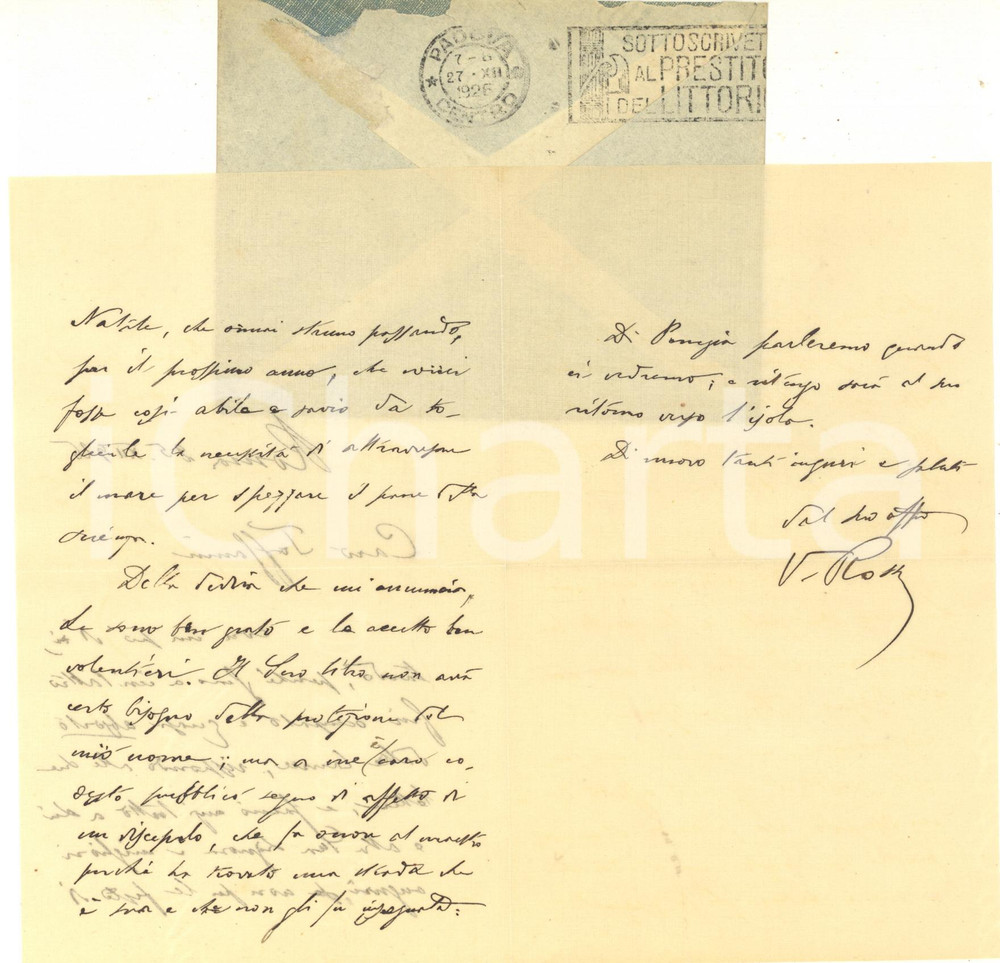 PADOVA
7-8
27·XII
1926
CENTRO
SOTTOSCRIVET
AL PRESTITO
DEL LITTORI
Natale, che ormai stanno passando,
per il prossimo anno, che
fosse così abile e savio da to-
glierle la necessità di attraversare
il mare per spezzare il pane della
scienza.
Della dedica che mi annuncia,
Le sono ben grato e la accetto ben
volentieri. Il Suo libro non avrà
certo bisogno della protezione del
mio nome; ma a me è caro co-
desto pubblico segno di affetto di
un discepolo, che fa onore al maestro
perché ha trovato una strada che
è sua e che non gli fu insegnata.
Di Perugia parleremo quando
ci vedremo; e ritengo sarà al suo
ritorno verso l'isola.
Di nuovo tanti auguri e saluti
dal suo aff.mo
V. Rossi
Caro Toffanin
iCharta